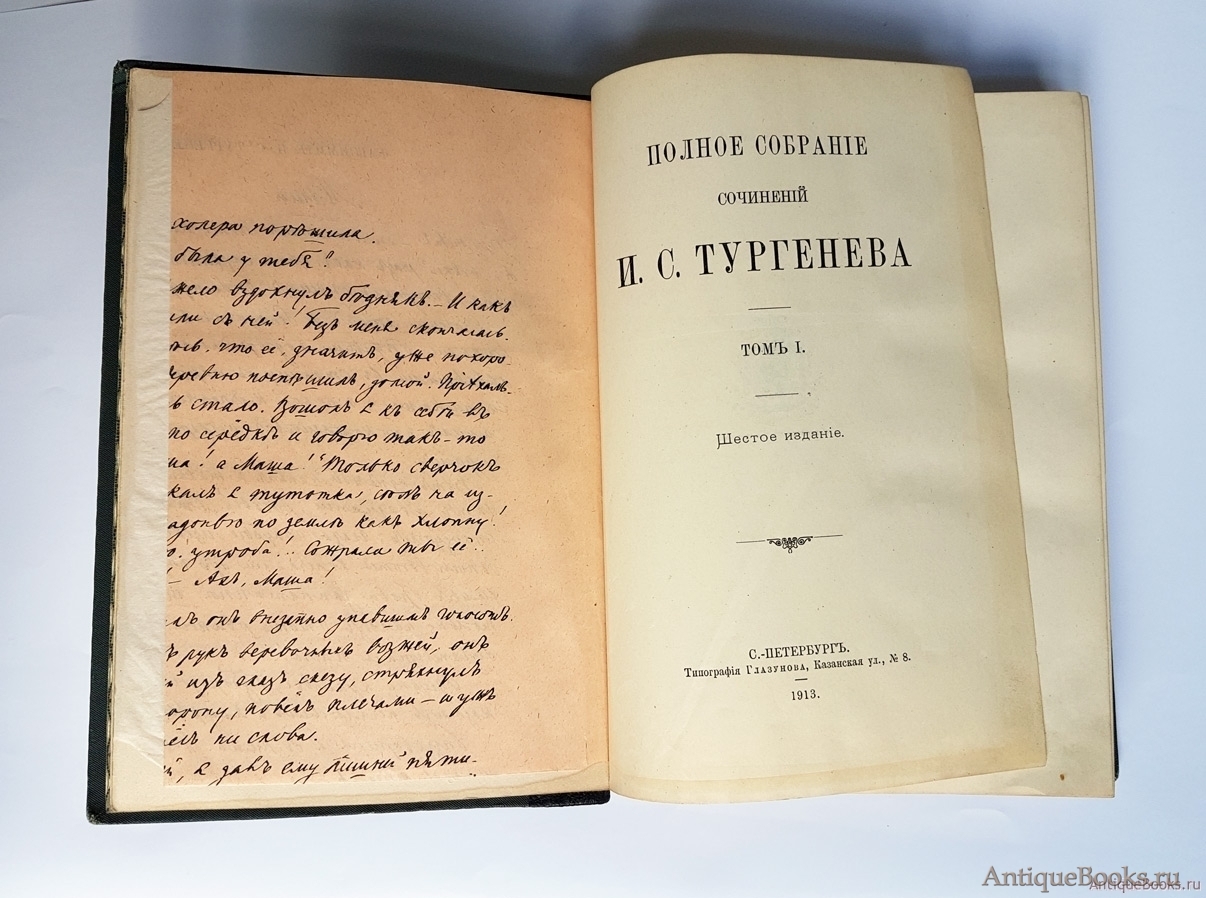 холера порѣшила.
была у тебя?
жело вздохнулъ бѣднякъ. – И какъ
или съ ней! Безъ меня скончалась.
что её, значитъ, уже похоро
деревню поспѣшилъ, домой. Пріѣхалъ-
ь стало. Вошолъ я къ себѣ въ
по серёдкѣ и говорю такъ-то
ша! а Маша!" Только сверчокъ
калъ я тутотка, на из-
ладонью по землѣ какъ хлопну!
утроба!.. Сожрала ты её..
! – Ахъ, Маша!
онъ внезапно упавшимъ голосомъ.
ъ рукъ веревочныхъ возжей, онъ
й изъ глазъ слезу, стряхнулъ
орону, повёлъ плечами – и ужъ
ни слова.
й, я далъ ему лишній пяти-
ПОЛНОЕ СОБРАНІЕ
СОЧИНЕНІЙ
И. С. ТУРГЕНЕВА
ТОМЪ I.
Шестое изданіе.
С.-ПЕТЕРБУРГЪ.
Типографія Глазунова, Казанская ул., № 8.
1913.
AntiqueBooks.ru
AntiqueBooks.ru